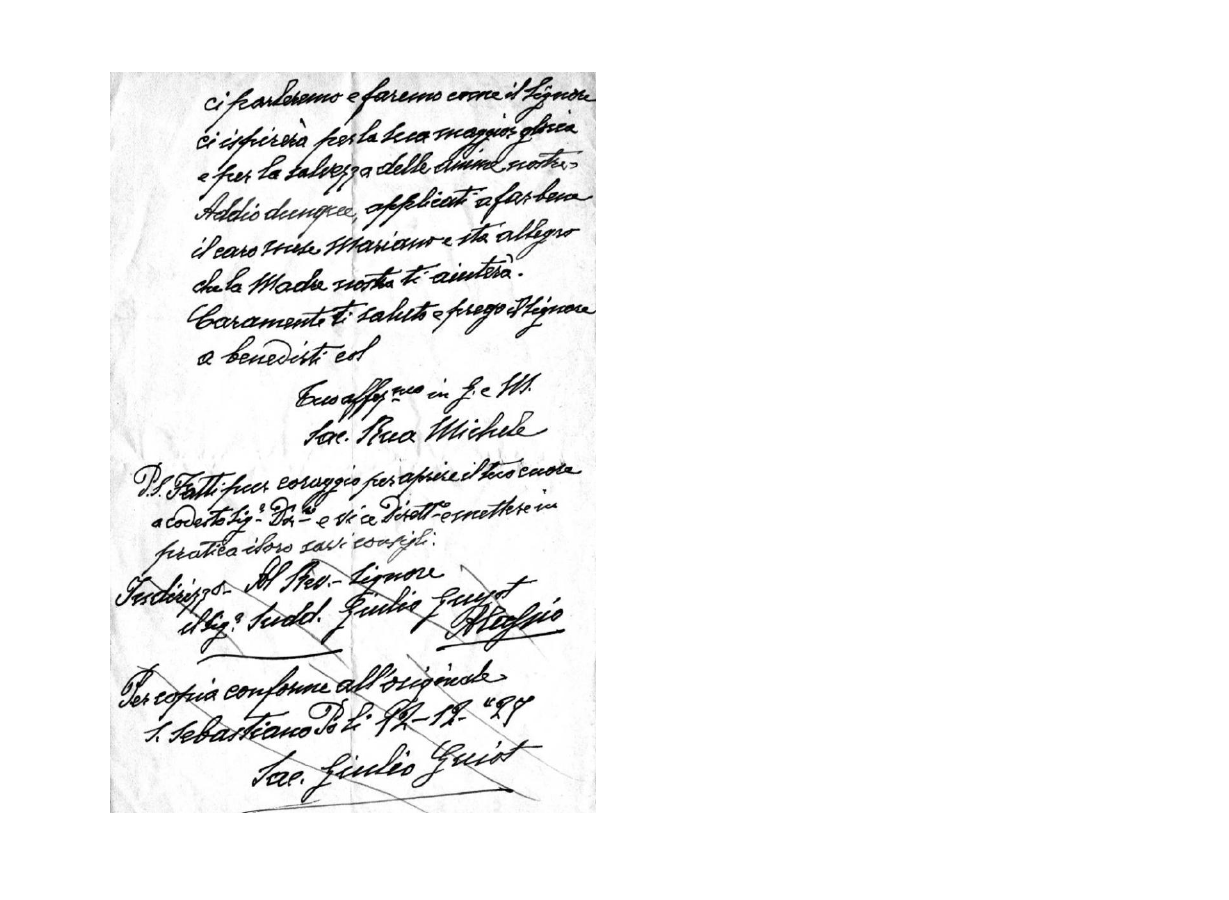 ci parleremo e faremo come il Signore
ci ispirerà per la sua maggior gloria
e per la salvezza delle anime nostre.
Addio dunque, applicati a far bene
il caro mese Mariano e sta allegro
che la Madre nostra ti aiuterà.
Caramente ti saluto e prego il Signore
a benedirti col
Tuo affez.mo in G. e M.
Sac. Rua Michele
P.S. Fatti pur coraggio per aprire il tuo cuore
a codesto Sig.r Dir.re e vice Dirett.re e mettere in
pratica i loro savi consigli.
Indirizzo - Al Rev. - Signore
il Sig.r Sudd. Giulio Guiot
Alassio
Per copia conforme all'originale
S. Sebastiano Po li 12-12-
Sac. Giulio Guiot